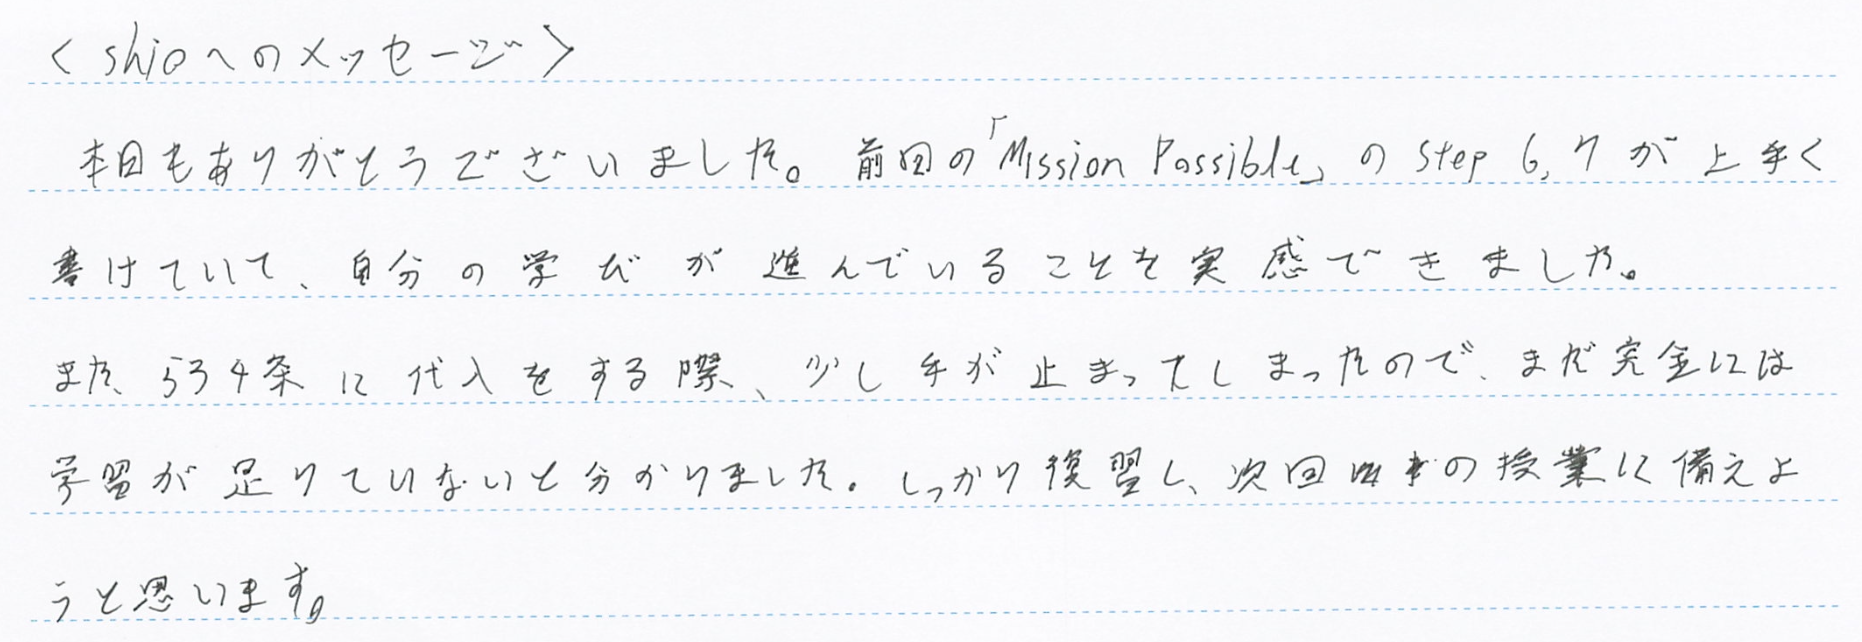 <shioへのメッセージ>
本日もありがとうございました。前回の「Mission Possible」のStep 6,7が上手く
書けていて、自分の学びが進んでいることを実感できました。
また、534条に代入をする際、少し手が止まってしまったので、まだ完全には
学習が足りていないと分かりました。しっかり復習し、次回の授業に備えよ
うと思います。